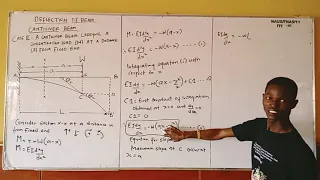 DEFLECTION OF BEAM
CANTILEVER BEAM
CASE II: A CANTILEVER BEAM CARRYING A
CONCENTRATED LOAD (W) AT A DISTANCE
(a) FROM FIXED END
W
A
B
Consider section X-X at a distance x
from fixed end
M = -W(a-x)
M = EI d²y/dx²
M = EI d²y/dx² = -W(a-x)
EI d²y/dx² = -W(a-x) ------ (i)
Integrating equation (i) with
respect to x
EI dy/dx = -W(ax - x²/2) + C1
C1 = First constant of integration
Obtained at x=0 and dy/dx = 0
C1 = 0
EI dy/dx = -W(ax - x²/2)
Equation for slope
Maximum slope at C occurs at
x = a
EI dy/dx = -W(